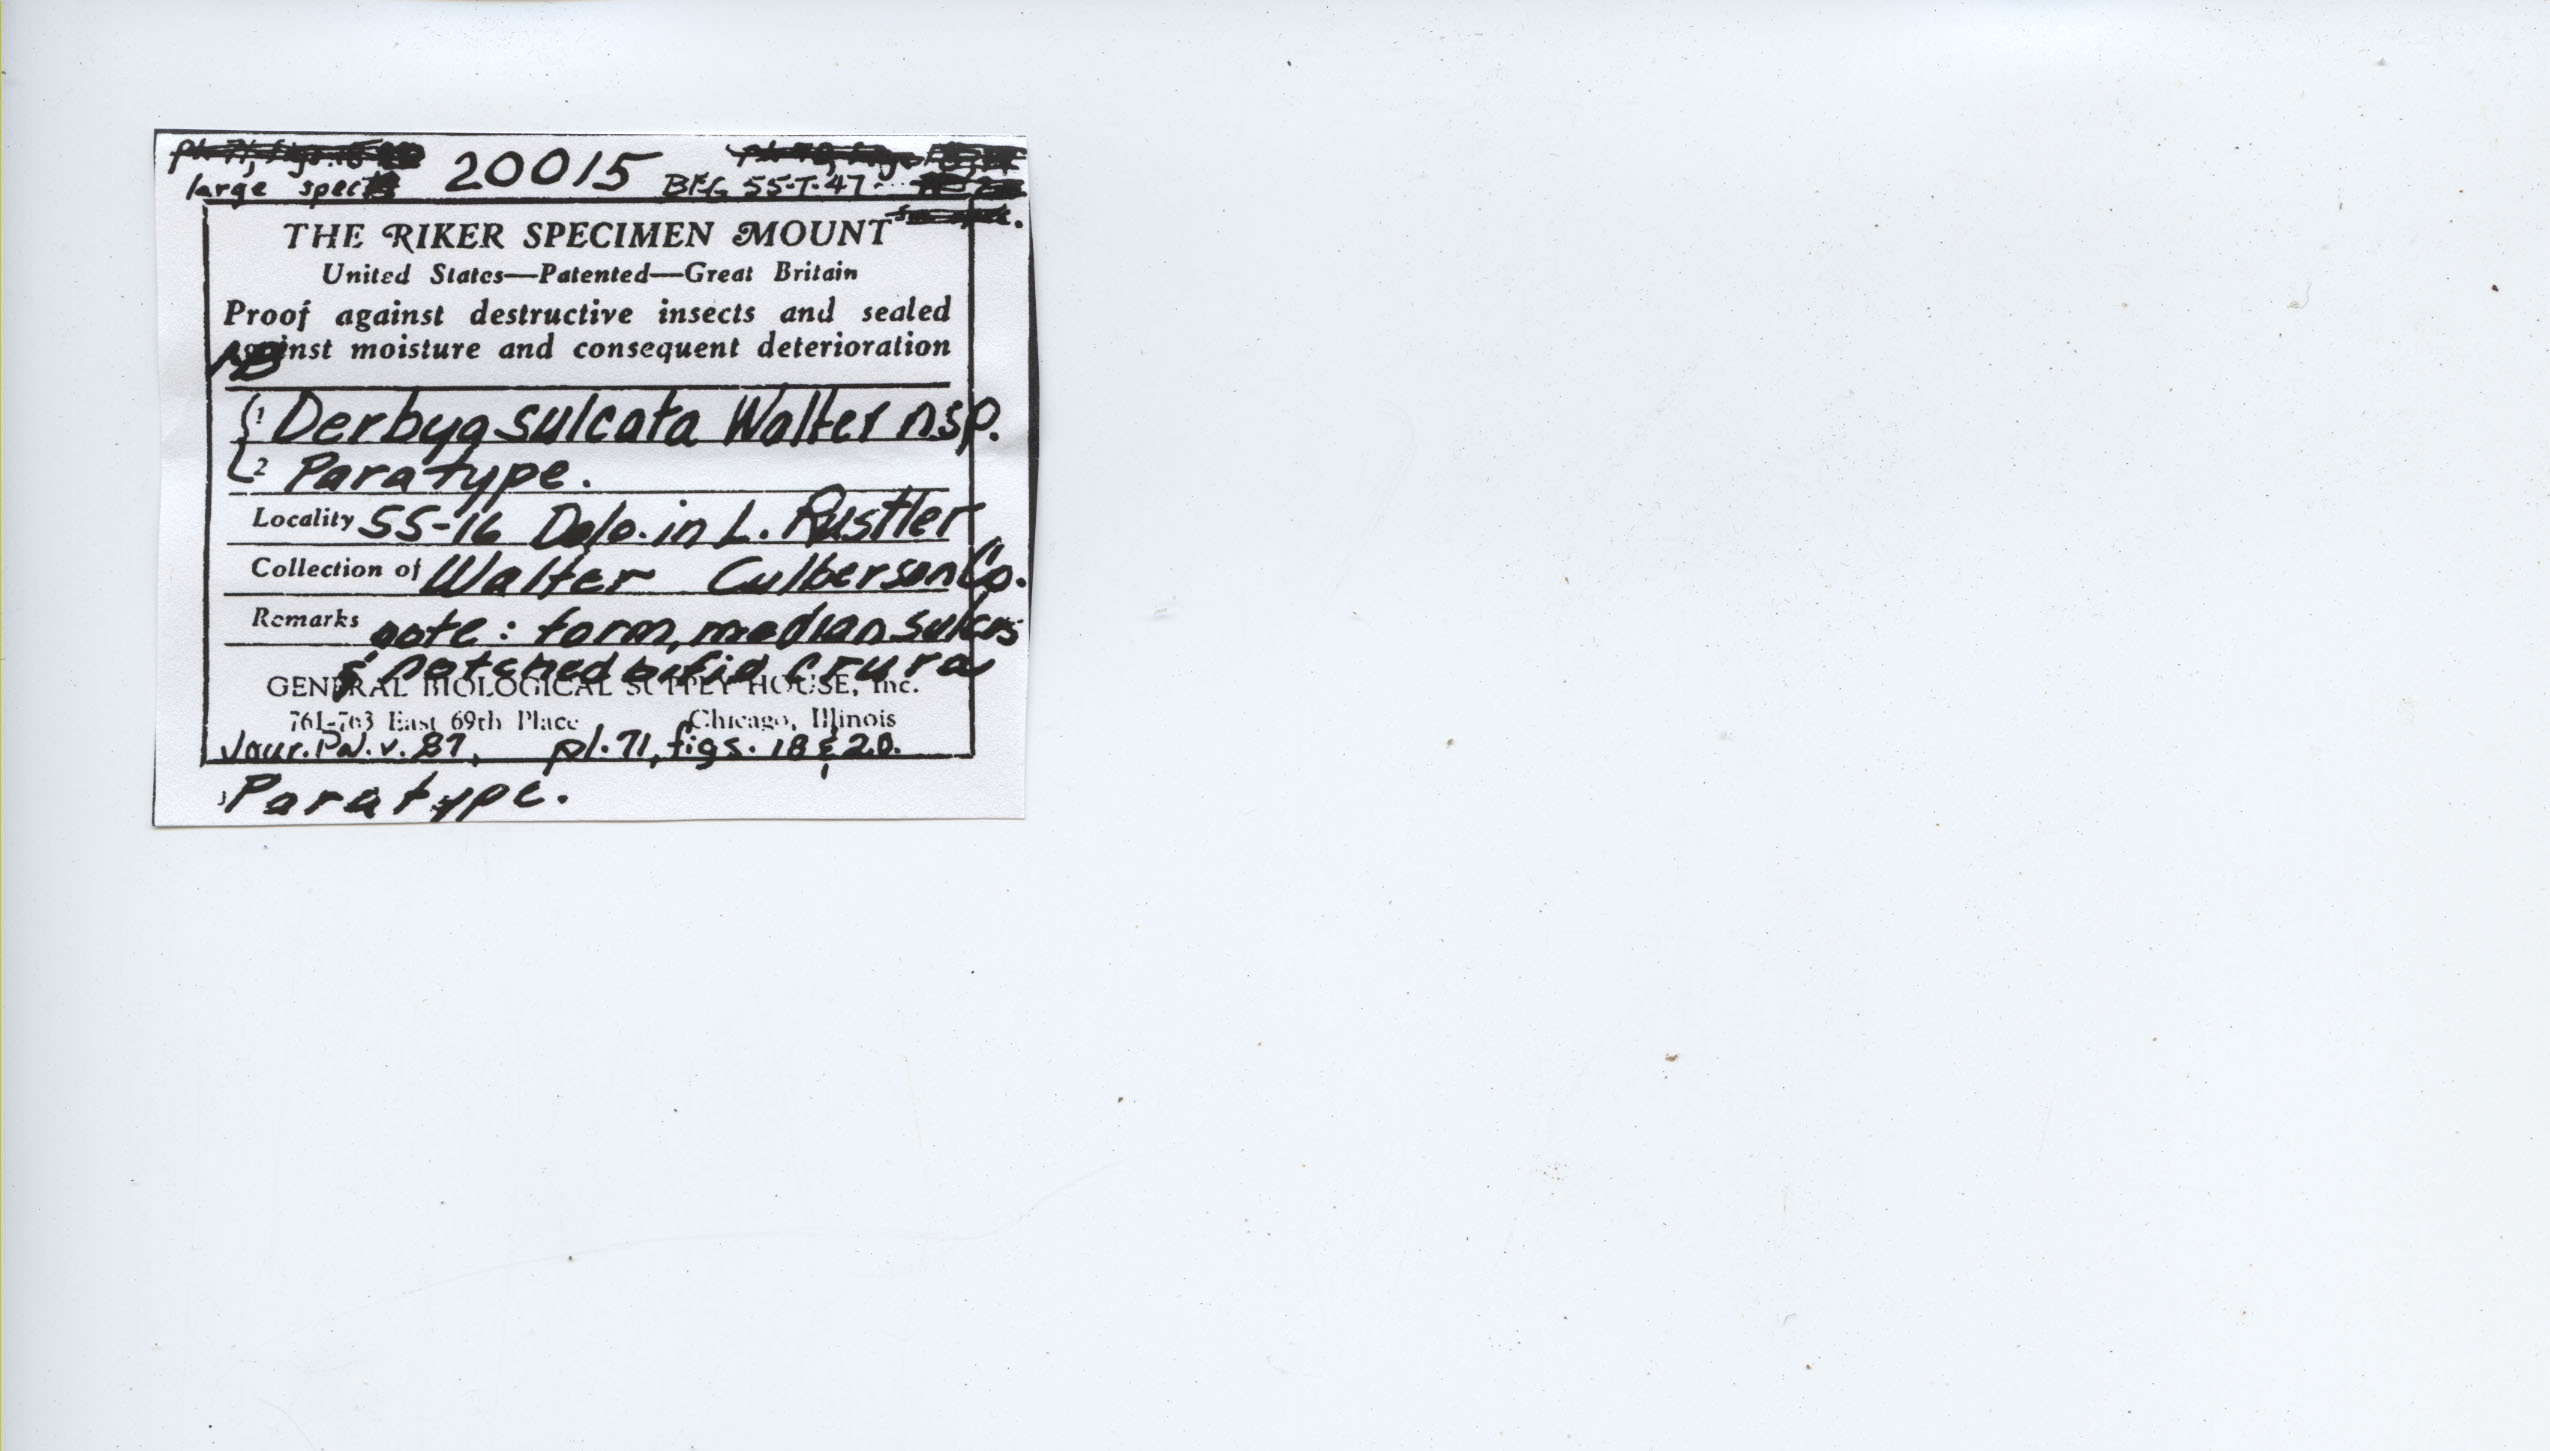 20015
large spec
BEG 55-T-47
THE RIKER SPECIMEN MOUNT
United States—Patented—Great Britain
Proof against destructive insects and sealed
against moisture and consequent deterioration
1 Derbya sulcata Walter n sp.
2 Paratype.
Locality 55-16 Dolo. in L. Rustler
Collection of Walter Culberson Co.
Remarks note: form, median sulcus
& notched bifid crura
GENERAL BIOLOGICAL SUPPLY HOUSE, Inc.
761-763 East 69th Place Chicago, Illinois
Jour. Pal. v. 27, pl. 71, figs. 18 & 20.
Paratype.